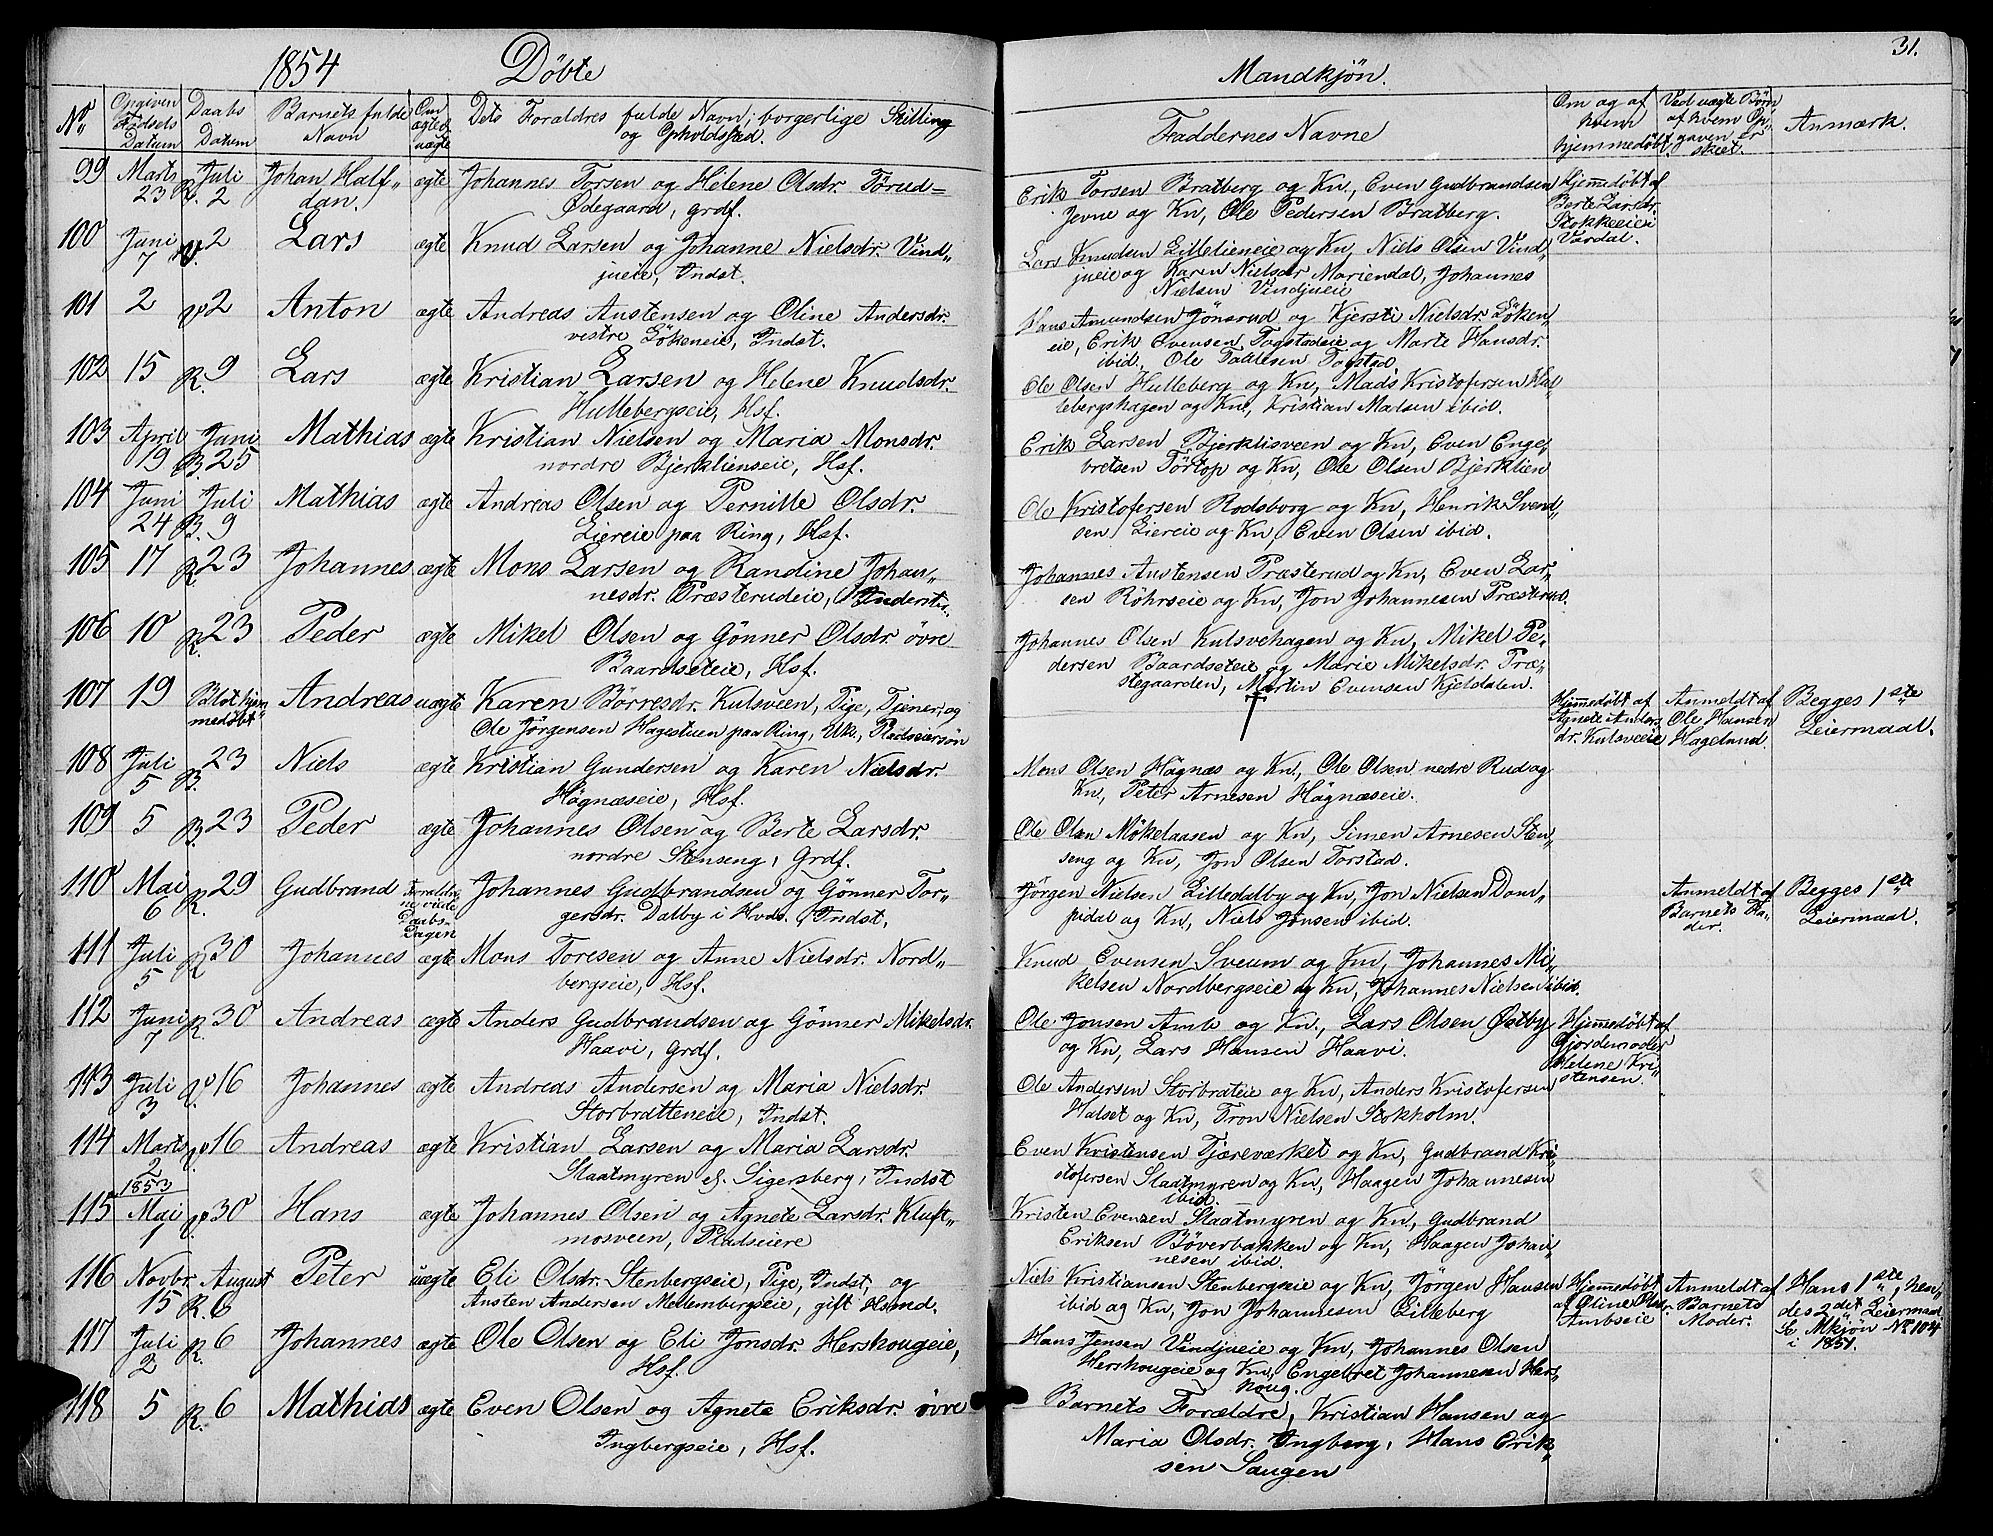 1854 Döbte
Mandkjön. 31.
No. Opgiven Födsels Datum Daabs Datum Barnets fulde Navn Om ægte el. uægte Dets Foræ­ldres fulde Navn, borgerlige Stilling og Opholdssted.
Faddernes Navne Om og af hvem hjemmedöbt Ved uægte Börn af hvem Opgaven er skeet. Anmærk.
99 Marts 23 R. Juli 2 Johan Half„ dan. ægte Johannes Torsen og Helene Olsdr. Törud=
Ödegaard, grdf.
Erik Torsen Bratberg og Kn, Even Gudbrandsen
Jevne og Kn, Ole Pedersen Bratberg.
Hjemedöbt af
Berte Larsdr.
Stokkeeie i
Vardal.
100 Juni 7 V. 2 Lars ægte Knud Larsen og Johanne Nielsdr. Vind„
jueie, Indst.
Lars Knudsen Lillelieneie og Kn, Niels Olsen Vind„
jueie og Karen Nielsdr Mariendal, Johannes
Nielsen Vindjueie
101 2 V. 2 Anton ægte Andreas Austensen og Oline Andersdr.
vestre Lökeneie, Indst.
Hans Amundsen Jönsrud og Kjersti Nielsdr. Löken„
eie, Erik Evensen Fogstadeie og Marte Hansdr.
ibid, Ole Tollesen Fogstad.
102 15 R. 9 Lars ægte Kristian Larsen og Helene Knudsdr.
Hullebergseie, Hsf.
Ole Olsen Hulleberg og Kn, Mads Kristofersen Hul
lebergshagen og Kn, Kristian Madsen ibid.
103 April 19 B. Juni 25 Mathias ægte Kristian Nielsen og Maria Monsdr.
nordre Bjerklienseie, Hsf.
Erik Larsen Bjerklisveen og Kn, Even Enge„
bretsen Törtop og Kn, Ole Olsen Bjerklien
104 Juni 24 B. Juli 9 Mathias ægte Andreas Olsen og Pernille Olsdr.
Liereie paa Ring, Hsf.
Ole Kristofersen Rodsborg og Kn, Henrik Svend„
sen Liereie og Kn, Even Olsen ibid.
105 17 R 23 Johannes ægte Mons Larsen og Randine Johan„
nesdr. Præsterudeie, Inderster.
Johannes Austensen Præsterud og Kn, Even Lar„
sen Röhrseie og Kn, Jon Johannesen Præsterud.
106 10 R. 23 Peder ægte Mikel Olsen og Gönner Olsdr. övre
Baardseteie, Hsf.
Johannes Olsen Kulsvehagen og Kn, Mikel Pe„
dersen Baardseteie og Marie Mikelsdr. Præ„
stegaarden, Martin Evensen Kjeldalen.
107 19 Blot hjem„ medöbt Andreas uægte Karen Börresdr. Kulsveen, Pige, Tjener, og
Ole Jörgensen Hagestuen paa Ring, Uk, Pladseiersön
†
Hjemedöbt af
Agnete Anders
dr. Kulsveeie
Anmeldt af
Ole Hansen
Hagelund.
Begges 1ste
Leiermaal.
108 Juli 5 B. 23 Niels ægte Kristian Gundersen og Karen Nielsdr.
Högnæseie, Hsf.
Mons Olsen Högnæs og Kn, Ole Olsen nedre Rud og
Kn, Peter Arnesen Högnæseie.
109 5 B. 23 Peder ægte Johannes Olsen og Berte Larsdr.
nordre Stenseng, Grdf.
Ole Olsen Mökelaasen og Kn, Simen Arnesen Sten„
seng og Kn, Jon Olsen Torstad.
110 Mai 6 R. 29 Gudbrand Johannes Gudbrandsen og Gönner Tor„
gersdr. Dalby i Hvds. Indst.
Jörgen Nielsen Lilledalby og Kn, Jon Nielsen Dom„
pidal og Kn, Niels Jonsen ibid.
Anmeldt af
Barnets Fa„
der.
Begges 1ste
Leiermaal.
111 Juli 5 R 30 Johannes ægte Mons Toresen og Anne Nielsdr. Nord„
bergseie, Hsf.
Knud Evensen Sveum og Kn, Johannes Mi„
kelsen Nordbergseie og Kn, Johannes Nielsen ibid.
112 Juni 7 R. 30 Andreas ægte Anders Gudbrandsen og Gönner Mikelsdr.
Haavi, Grdf.
Ole Jonsen Amb og Kn, Lars Olsen Östby
og Kn, Lars Hansen Haavi.
Hjemedöbt af
Gjordemoder
Helene Kri„
stensen.
113 Juli 3 V. 16 Johannes ægte Andreas Andersen og Maria Nielsdr.
Storbratteneie, Indst.
Ole Andersen Storbrateie og Kn, Anders Kristofersen
Halset og Kn, Tron Nielsen Stokholm.
114 Marts 2 V. 16 Andreas ægte Kristian Larsen og Maria Larsdr.
Slaatmyren ef. Sigersberg, Indst
Even Kristensen Tjæreværket og Kn, Gudbrand Kri„
stofersen Slaatmyren og Kn, Haagen Johannesen
ibid.
115 1853 Mai 1 V. 30 Hans ægte Johannes Olsen og Agnete Larsdr. Kluft„
mosveen, Pladseiere
Kristen Evensen Slaatmyren og Kn, Gudbrand
Eriksen Böverbakken og Kn, Haagen Johan„
nesen ibid.
116 Novbr. 15 R. August 6 Peter uægte Eli Olsdr. Stenbergseie, Pige, Indst, og
Austen Andersen Mellembergseie, gift Hsmd.
Niels Kristiansen Stenbergseie og Kn, Jörgen Hansen
ibid og Kn, Jon Johannesen Lilleberg
Hjemedöbt
af Oline Olsdr.
Ambseie
Anmeldt af
Barnets
Moder.
Hans 1ste, hen„
des 2det Leiermaal
Se Mkjön No 104
i 1851.
117 Juli 2 R. 6 Johannes ægte Ole Olsen og Eli Jonsdr. Herskougeie,
Hsf.
Hans Jensen Vindjueie og Kn, Johannes Olsen
Herskougeie og Kn, Engebret Johannesen Her„
skoug.
118 5 R. 6 Mathias ægte Even Olsen og Agnete Eriksdr. övre
Ingbergseie, Hsf.
Barnets Forældre, Kristian Hansen og
Maria Olsdr. Ingberg, Hans Erik„
sen Saugen